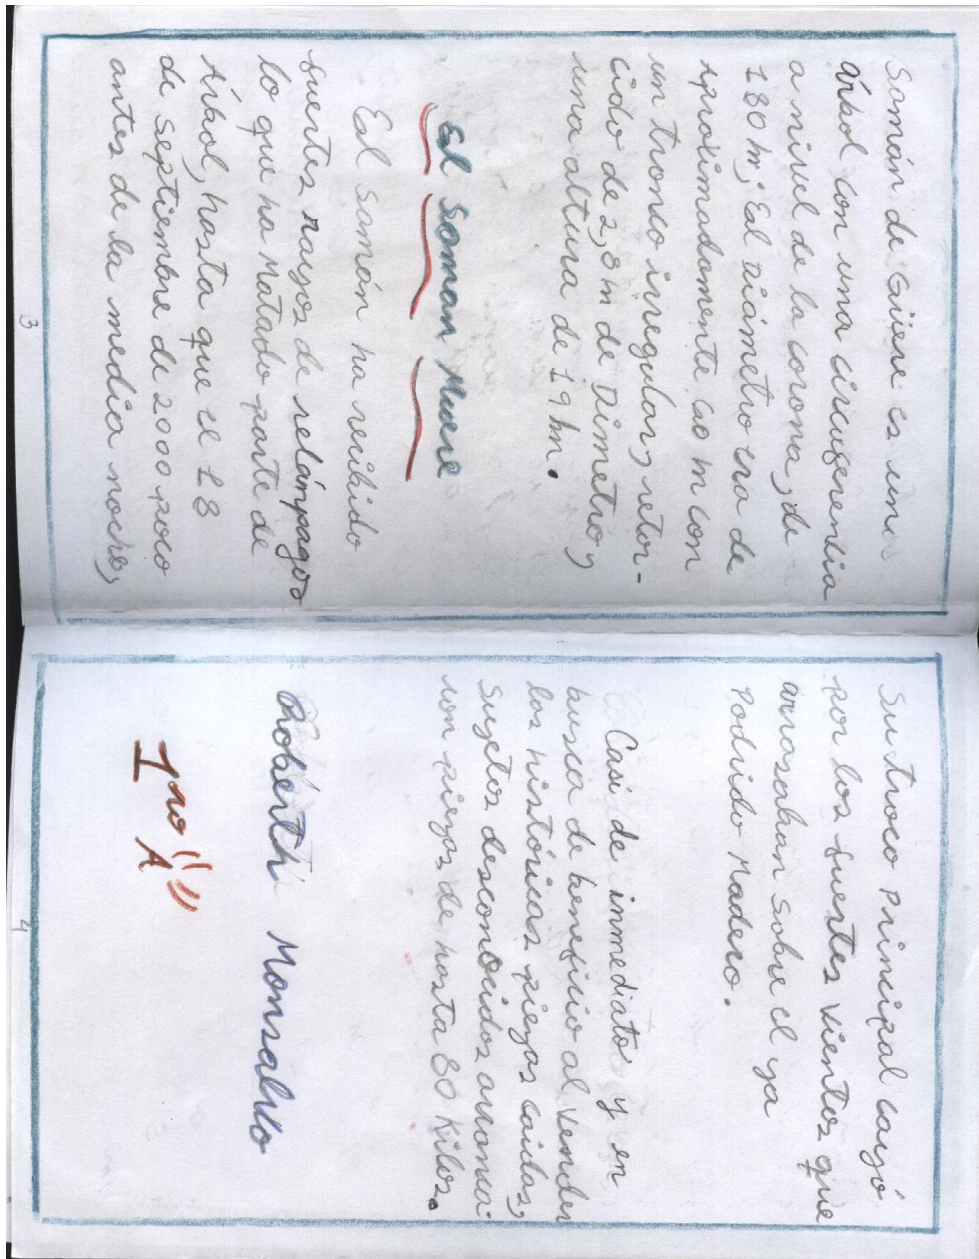 Samán de Güere es uno
Árbol con una circuferentia
a nivel de la corona, de
180 m; Eal diámetro era de
aproximadamente 60 m con
un tronco irregular, retor-
cido de 2,8 m de Dimetro y
una altura de 19 m.
El Soman Muere
Eal Samán ha recibido
fuertes rayos de relámpagos
lo que ha Matado parte de
Árbol, hasta que el 18
de septiembre de 2000 poco
antes de la media noche,
3
Su troco principal cayó
por los fuertes vientos que
arrasaban sobre el ya
Podrido Madero.
Casi de inmediato y en
busca de beneficio al vender
las históricas piezas caidas,
Sugetos desconocidos arranca-
ron piezas de hasta 80 Kilos.
Roberth Monsalvo
1ro "A"
4